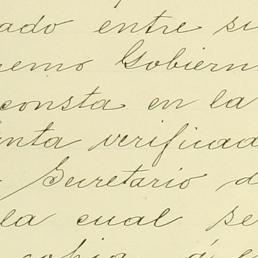 ado entre si
remo Gobiern
consta en la
nta verificad
Secretario d
la cual se
copia á l